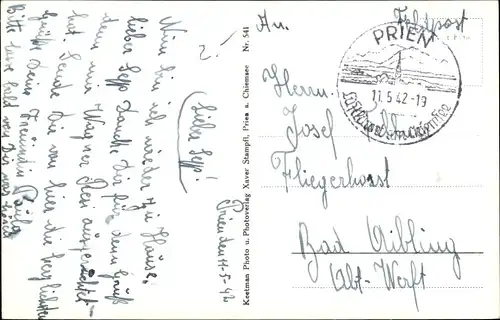 Prien den 11.5.42
Lieber Sepp!
Nun bin ich wieder zu Hause,
lieber Sepp Dank Dir für dein Gruß
denn mir Wagner Resi ausgerichtet
hat. Sende Dir von hier die herzlichsten
Grüße Deine Freundin
Bitte lasse bald von Dir was hören
Keetman Photo u. Photoverlag Xaver Stampfl, Prien a. Chiemsee Nr. 541
An
Feldpost
PRIEN
11.5.42-19
Herrn
Josef
Fliegerhorst
Bad Aibling
Abt- Werft